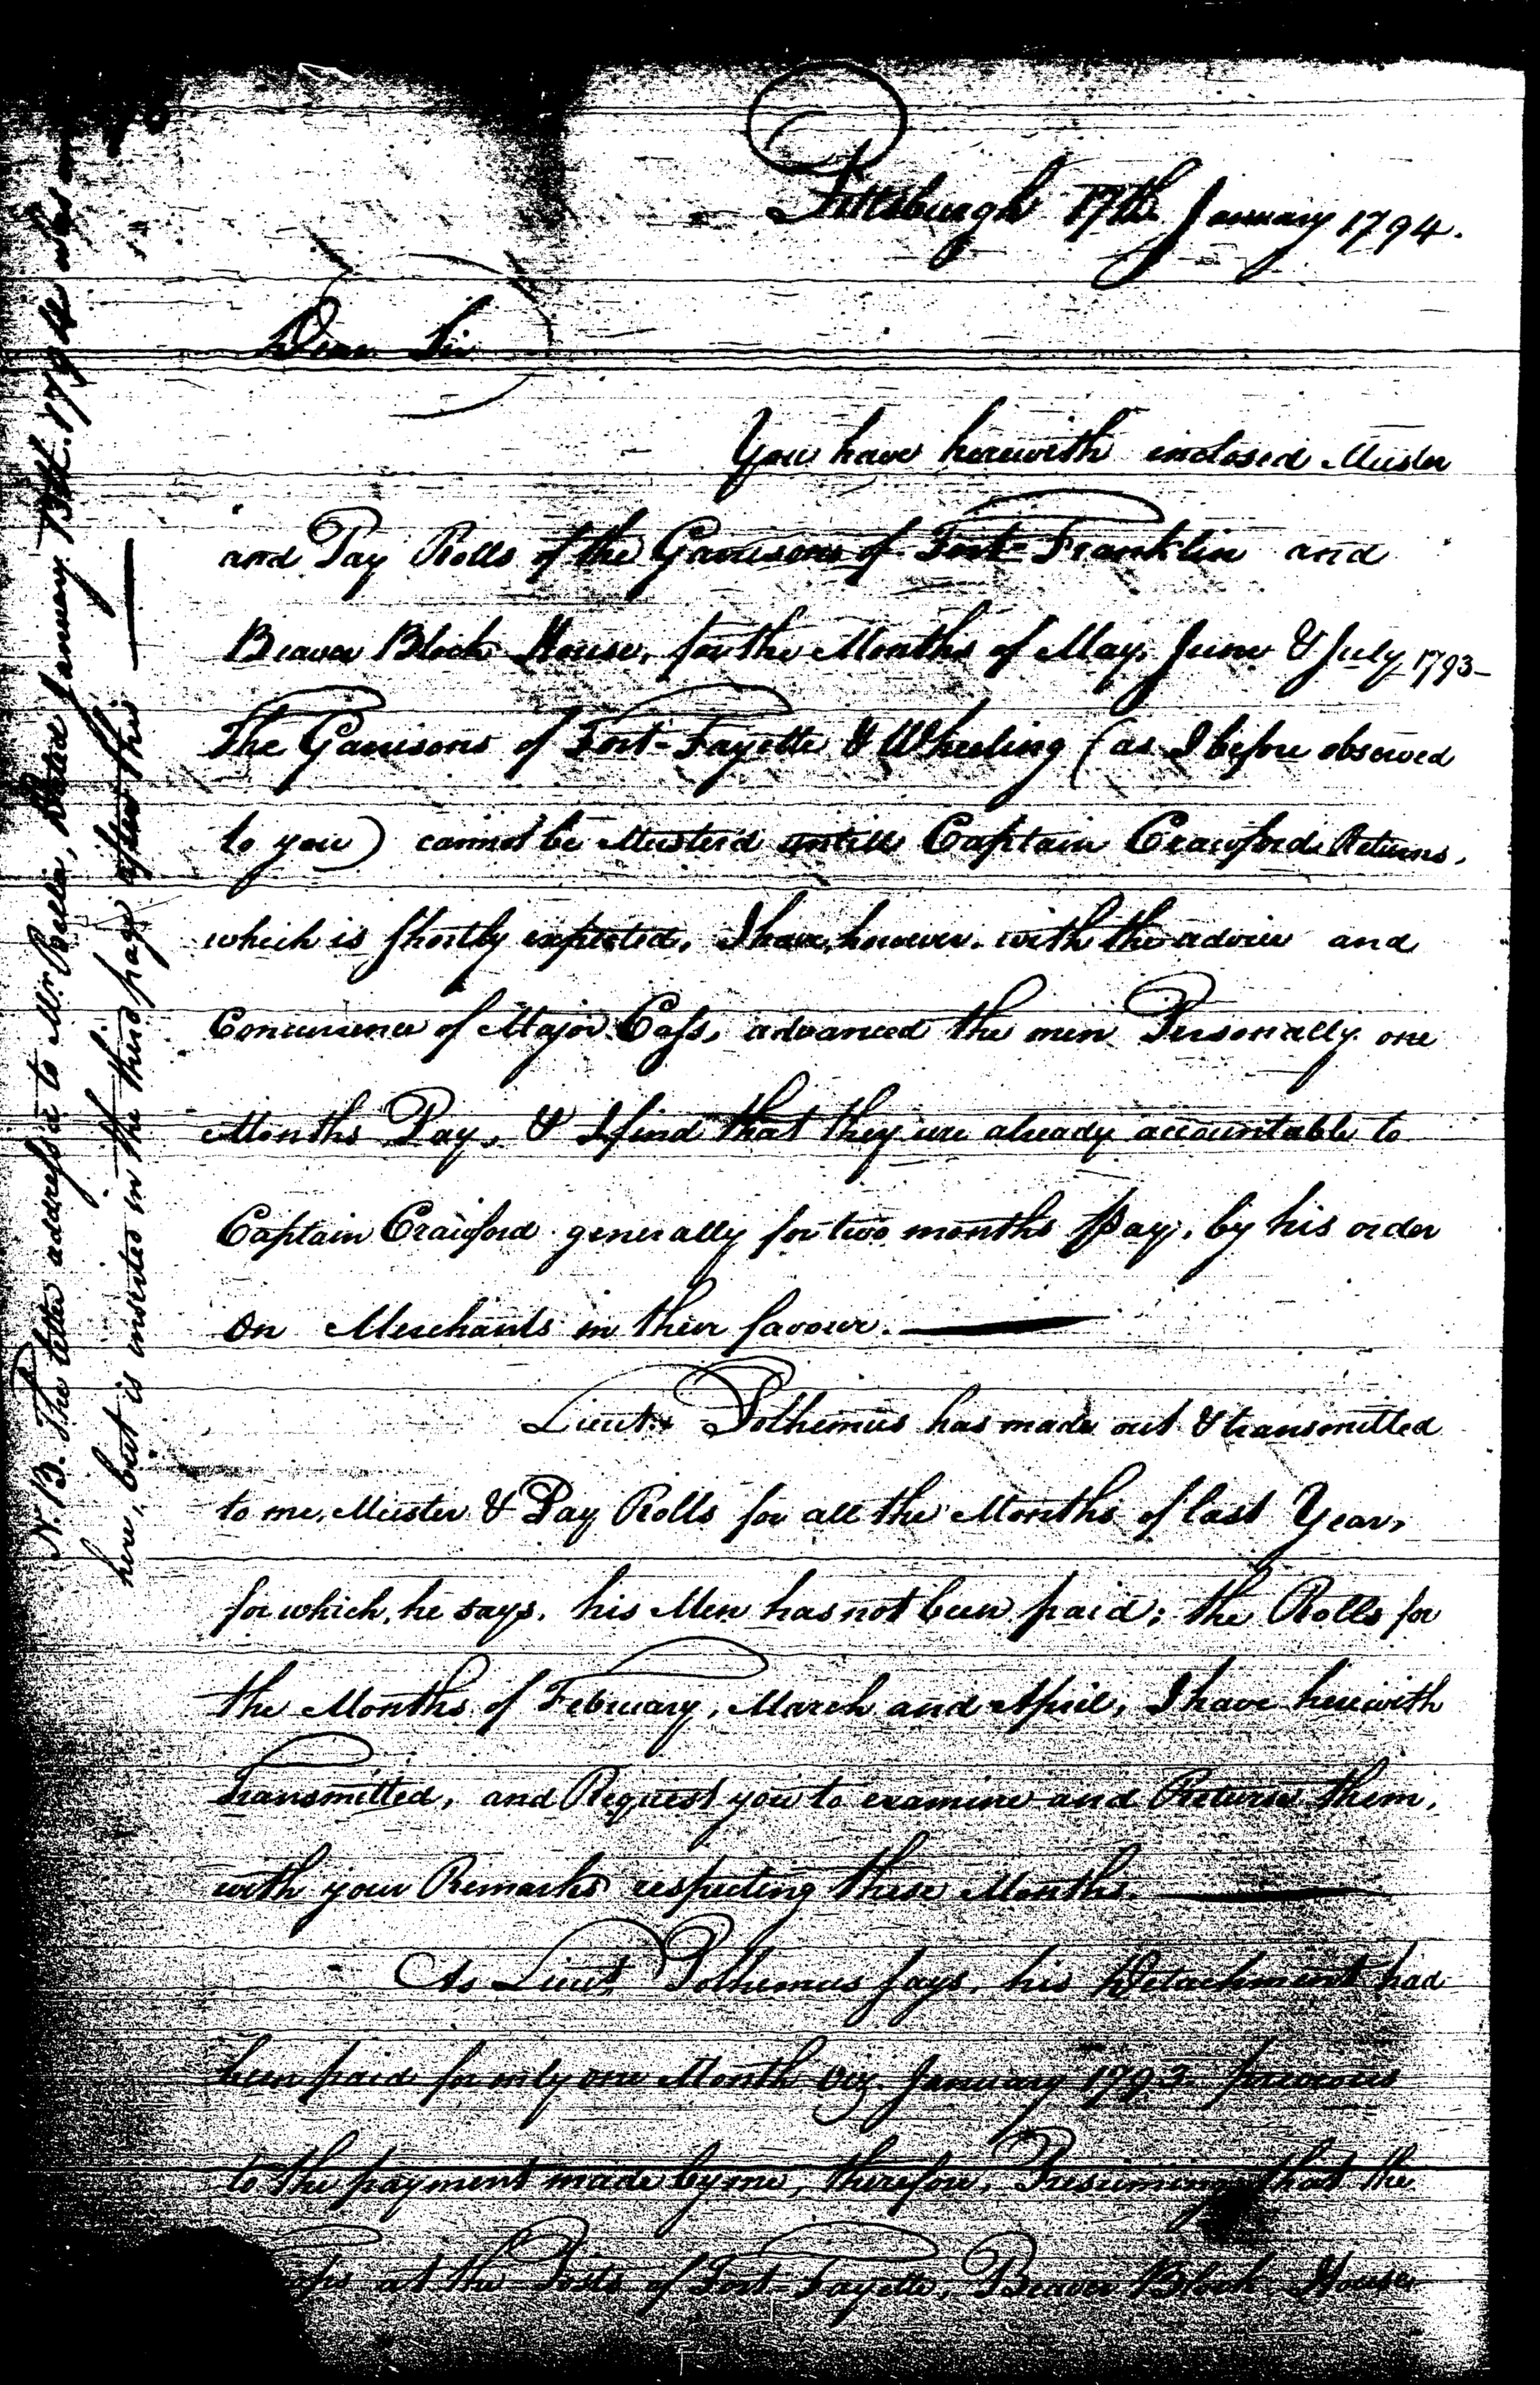 Pittsburgh 17th January 1794.
Dear Sir
You have herewith inclosed Muster
and Pay Rolls of the Garrisons of Fort-Franklin and
Beaver Block House, for the Months of May, June & July 1793-
The Garrisons of Fort-Fayette & Wheeling (as I before observed
to you) cannot be Musterd untill Captain Crawfords Returns,
which is shortly expected, I have, however, with the advice and
Concurrence of Major Cass, advanced the men Personally one
Months Pay, & I find that they are already accountable to
Captain Crawford generally for two months Pay, by his order
on Merchants in their favour.
Lieut. Polhemus has made out & transmitted
to me, Muster & Pay Rolls for all the Months of last Year,
for which, he says, his Men has not been paid; the Rolls for
the Months of February, March and April, I have herewith
Transmitted, and Request you to examine and Return them,
with your Remarks respecting these Months.
As Lieut. Polhemus says, his Detachment had
been paid for only one Month Viz. January 1793 previous
to the payment made by me, therefore, Presuming that the
at the Posts of Fort-Fayette, Beaver Block House
N.B. The letter address'd to Mr. Bella, Dated January 13th. 1794 was
here, but is inserted in the third page after this